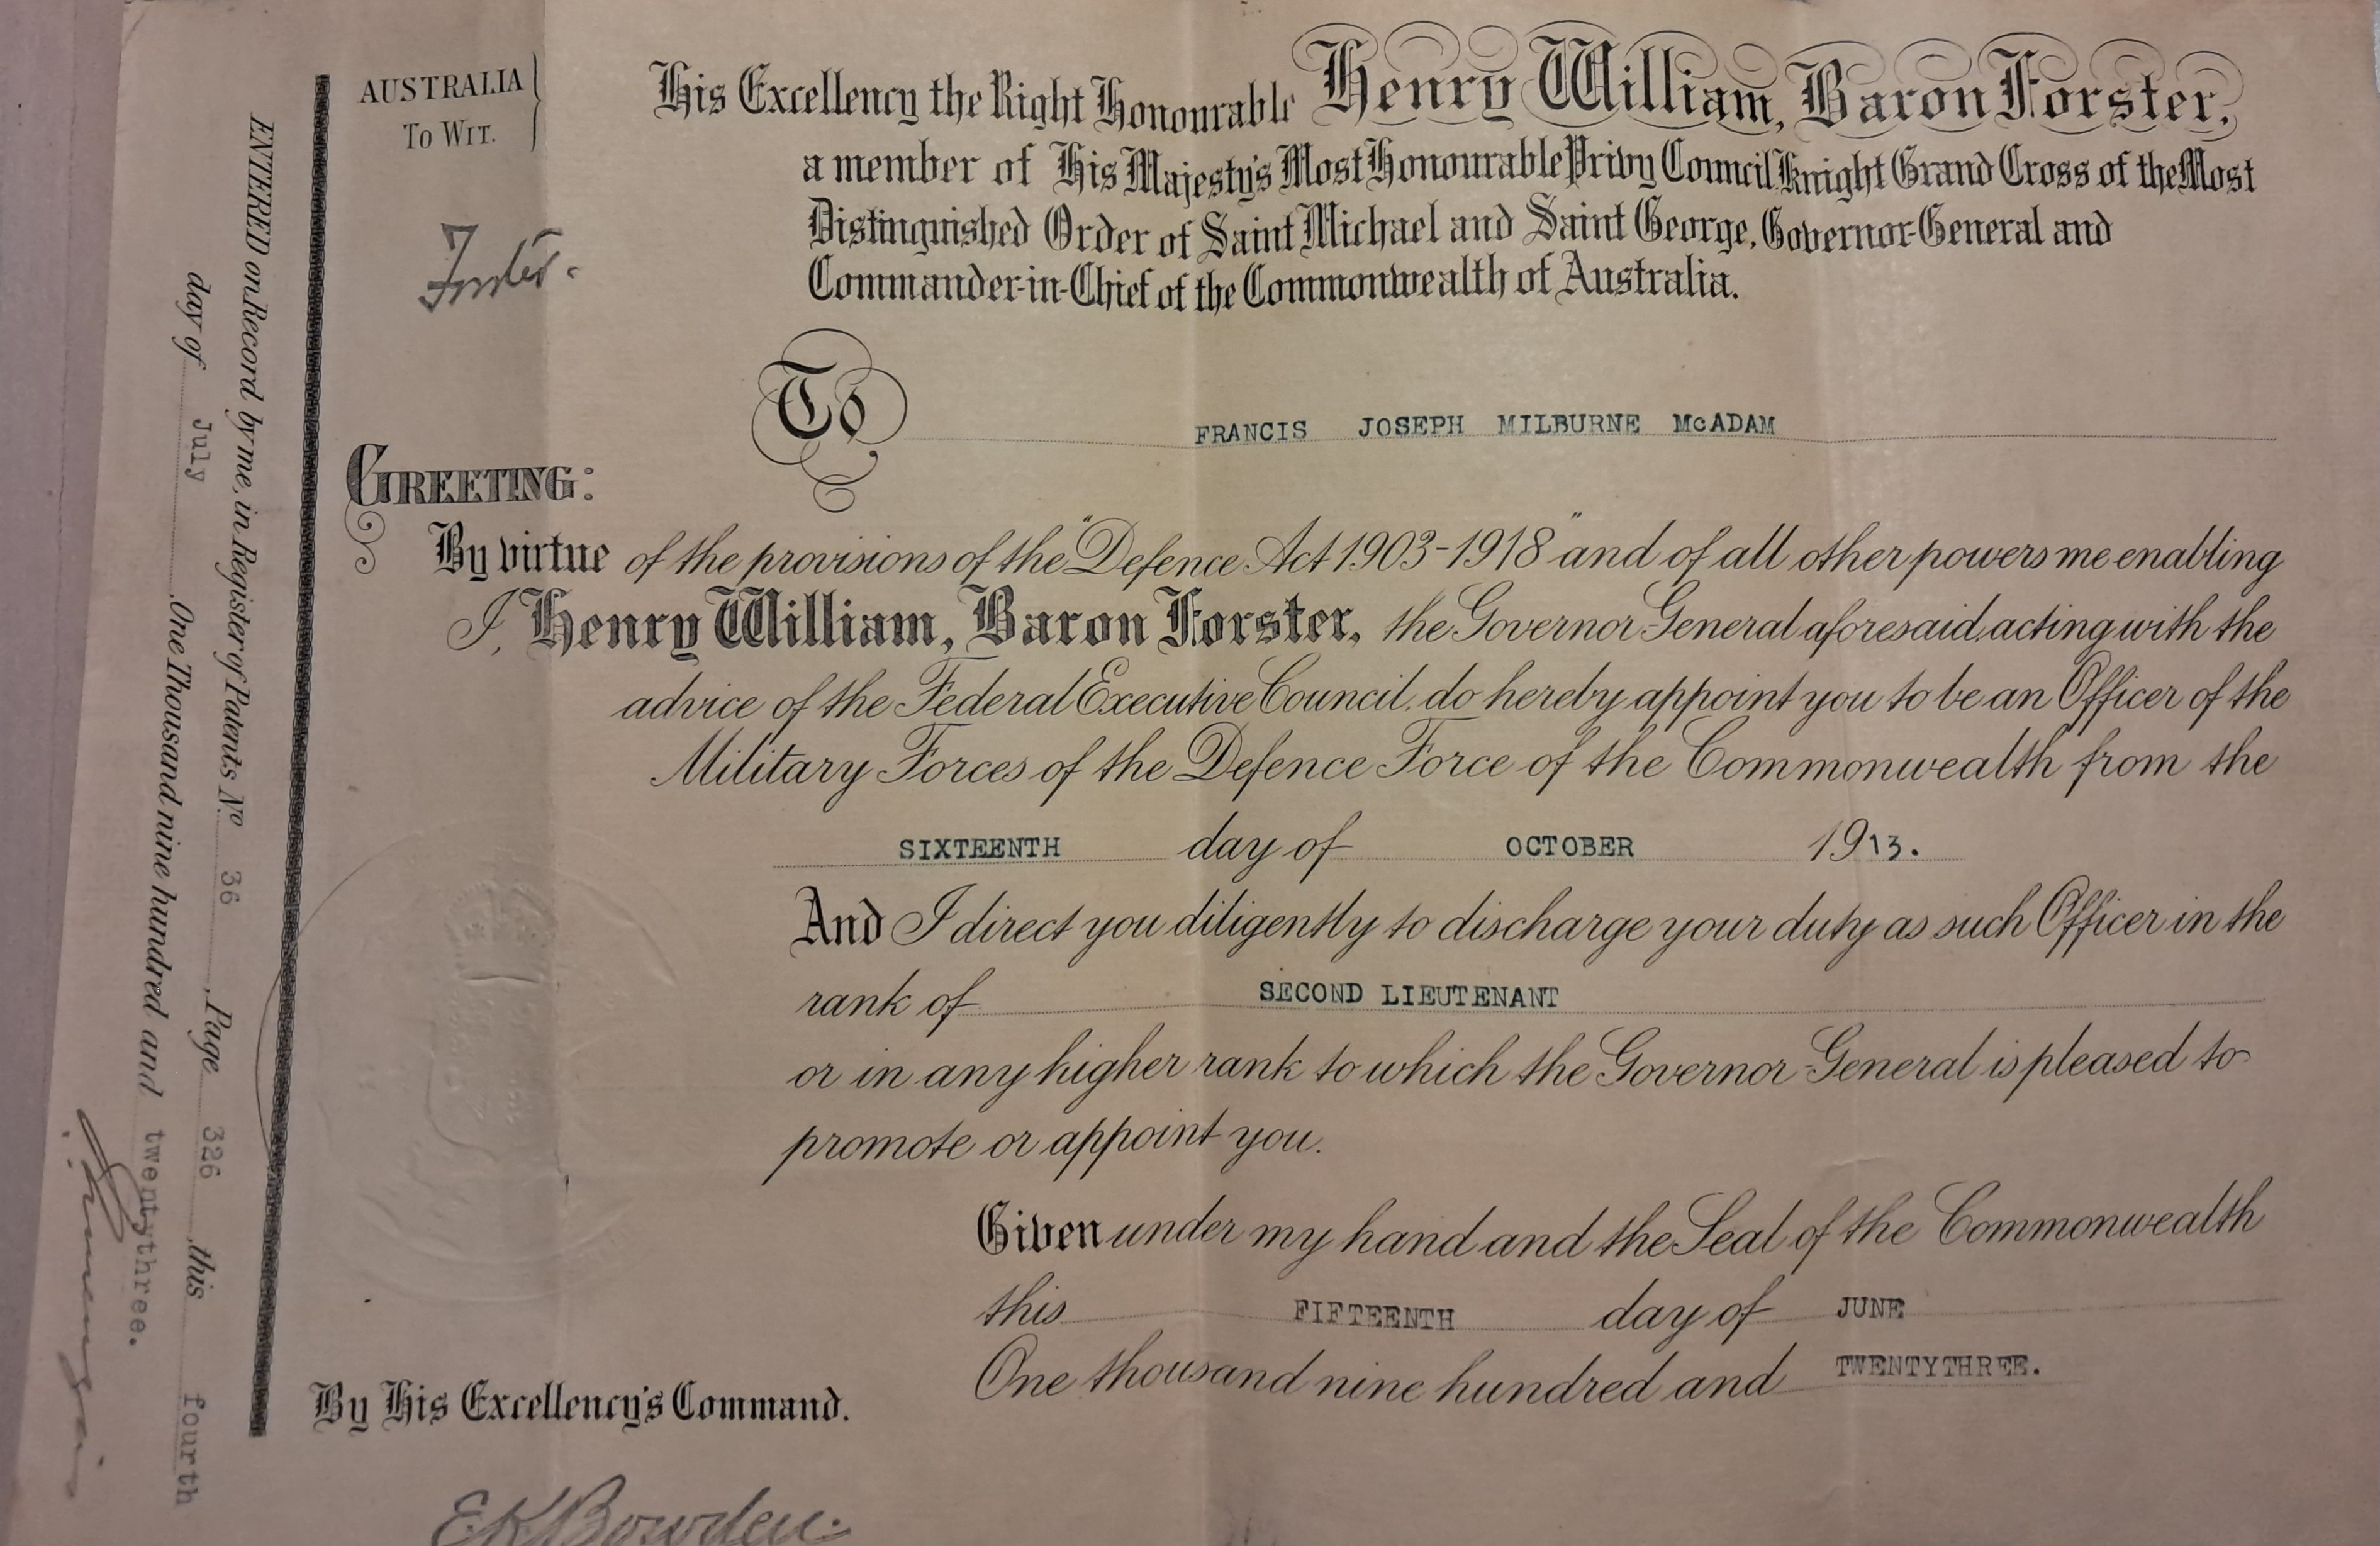 AUSTRALIA
To Wit.
Forster.
His Excellency the Right Honourable Henry William, Baron Forster,
a member of His Majesty's Most Honourable Privy Council Knight Grand Cross of the Most
Distinguished Order of Saint Michael and Saint George, Governor-General and
Commander-in-Chief of the Commonwealth of Australia.
To FRANCIS JOSEPH MILBURNE McADAM
GREETING:
By virtue of the provisions of the "Defence Act 1903-1918" and of all other powers me enabling
I, Henry William, Baron Forster, the Governor General aforesaid, acting with the
advice of the Federal Executive Council, do hereby appoint you to be an Officer of the
Military Forces of the Defence Force of the Commonwealth from the
SIXTEENTH day of OCTOBER 1913.
And I direct you diligently to discharge your duty as such Officer in the
rank of SECOND LIEUTENANT
or in any higher rank to which the Governor General is pleased to
promote or appoint you.
Given under my hand and the Seal of the Commonwealth
this FIFTEENTH day of JUNE
One thousand nine hundred and TWENTYTHREE.
By His Excellency's Command.
E K Bowden.
ENTERED on Record by me, in Register of Patents No 36 Page 326 this fourth
day of July One Thousand nine hundred and twentythree.